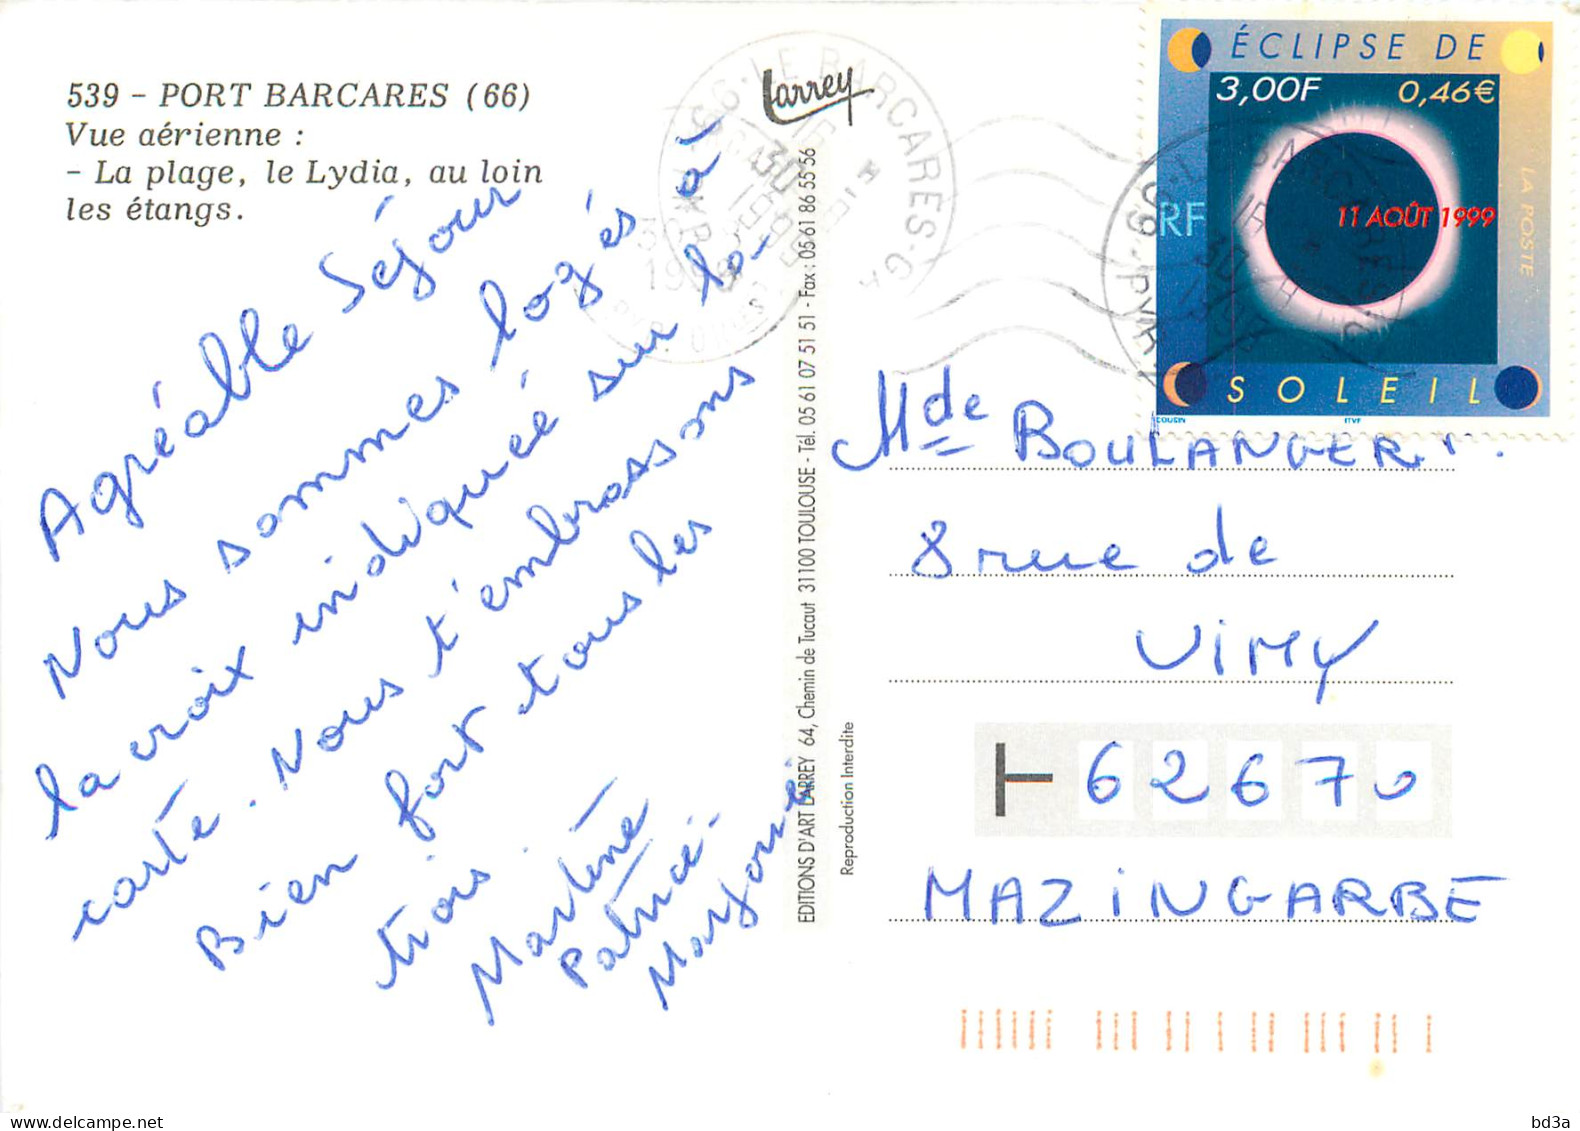 539 - PORT BARCARES (66)
Vue aérienne :
- La plage, le Lydia, au loin
les étangs.
Larrey
Agréable Séjour
Nous sommes logés à
la croix indiquée sur la
carte. Nous t'embrassons
Bien fort tous les
trois.
Martine
Patrice
EDITIONS D'ART LARREY 64, Chemin de Tucaut 31100 TOULOUSE - Tél. 05 61 07 51 51 - Fax : 05 61 86 55 56
Reproduction Interdite
66 · LE BARCARES
ÉCLIPSE DE
3,00F 0,46€
RF
11 AOÛT 1999
LA POSTE
SOLEIL
ITVF
Mde BOULANGER
8 rue de
VIMY
62670
MAZINGARBE
www.delcampe.net
bd3a